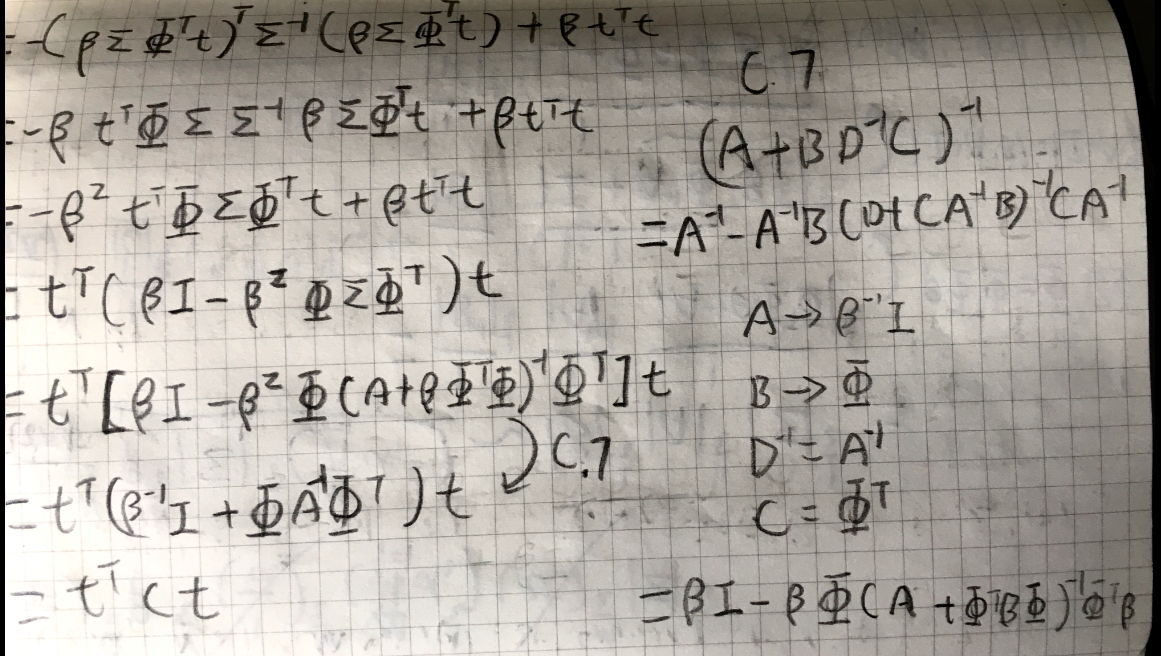 = -(βΣΦᵀt)ᵀΣ⁻¹(βΣΦᵀt) + βtᵀt
= -βtᵀΦΣΣ⁻¹βΣΦᵀt + βtᵀt
= -β²tᵀΦΣΦᵀt + βtᵀt
= tᵀ(βI - β²ΦΣΦᵀ)t
= tᵀ[βI - β²Φ(A+βΦᵀΦ)⁻¹Φᵀ]t
C.7
= tᵀ(β⁻¹I + ΦA⁻¹Φᵀ)t
= tᵀCt
C.7
(A+BD⁻¹C)⁻¹
= A⁻¹ - A⁻¹B(D+CA⁻¹B)⁻¹CA⁻¹
A → β⁻¹I
B → Φ
D⁻¹ = A⁻¹
C = Φᵀ
= βI - βΦ(A + ΦᵀβΦ)⁻¹Φᵀβ